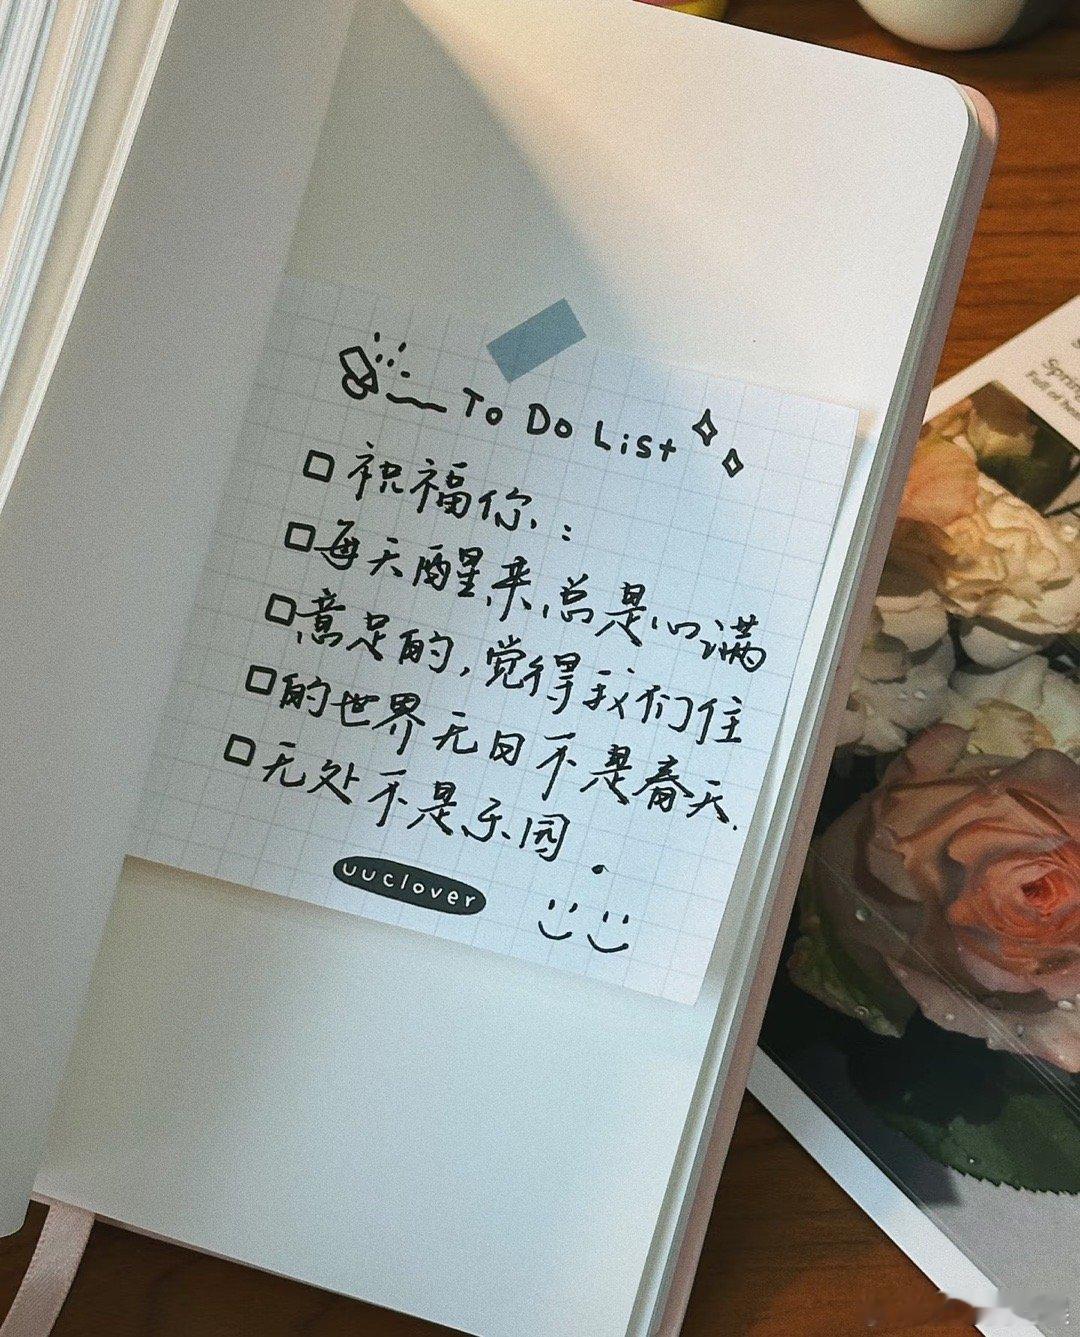 To Do List
祝福你：
每天醒来,总是心满
意足的,觉得我们住
的世界无日不是春天.
无处不是乐园。
uuclover
Spring
Full of